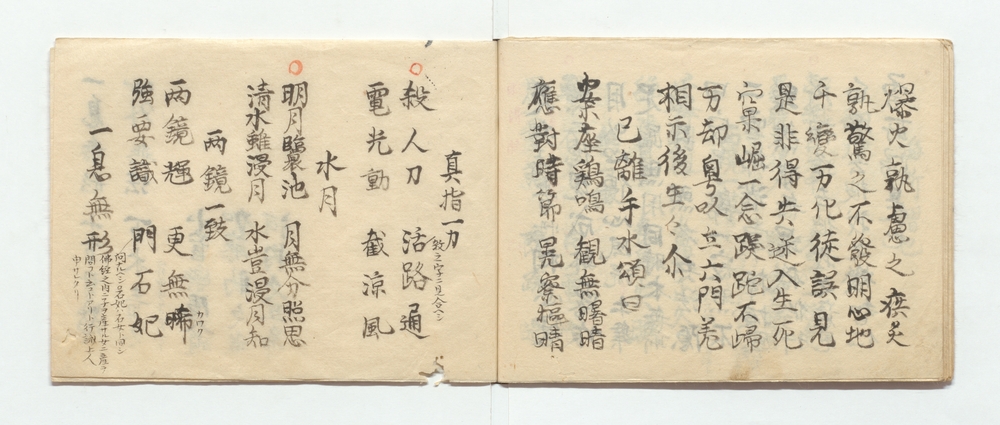 爆火孰慮之疾炙
孰驚之不發明心地
千變万化徒誤見
是非得失逐入生死
窠崛一念蹉跎不歸
万却粤以立六門羗
相示後生々尒
已離手水頌曰
安座鶏鳴 観無曙暗
應對時節 晃寮樞晴
真指一刀
殺人刀 活路通
電光動 截涼風
水月
明月臨池 月無分照思
清水雖浸月 水豈浸月知
両鏡一致
両鏡遇 更無晞
カワク
強要識 門石妃
一息無形